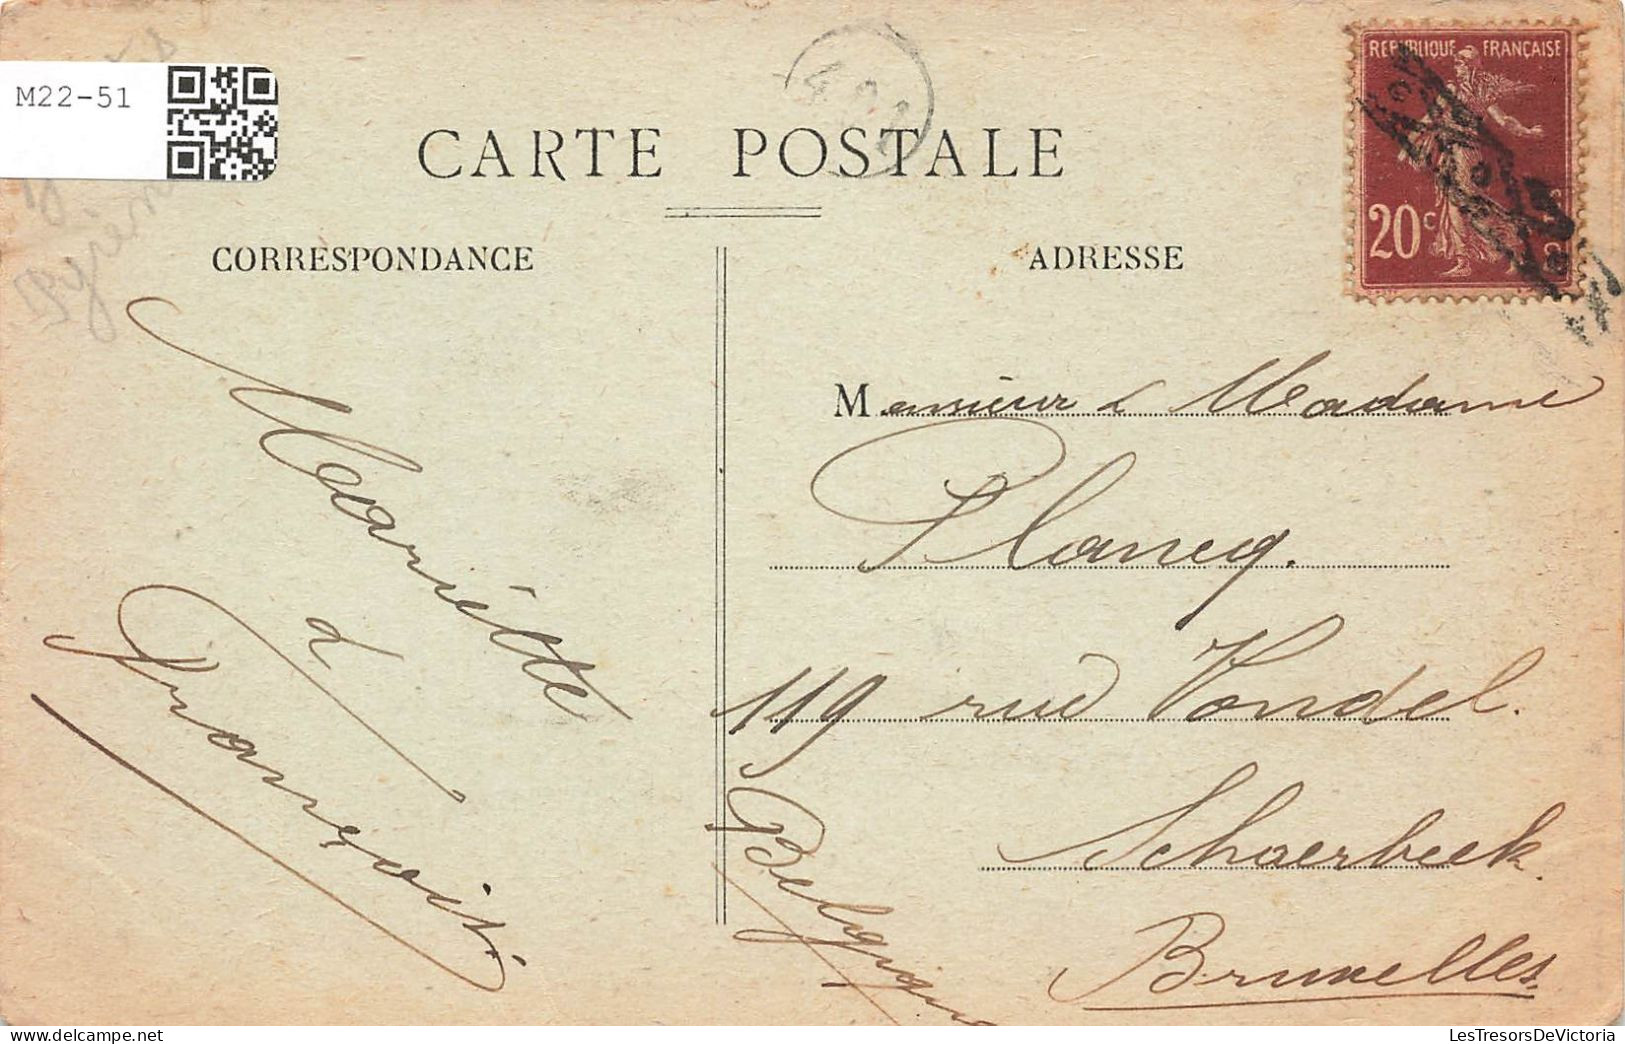 M22-51
CARTE POSTALE
CORRESPONDANCE
ADRESSE
REPUBLIQUE FRANÇAISE
20c
Monsieur & Madame
Plancq.
119 rue Vondel.
Schaerbeek.
Bruxelles
Belgique
Mariette
&
François.
LesTresorsDeVictoria